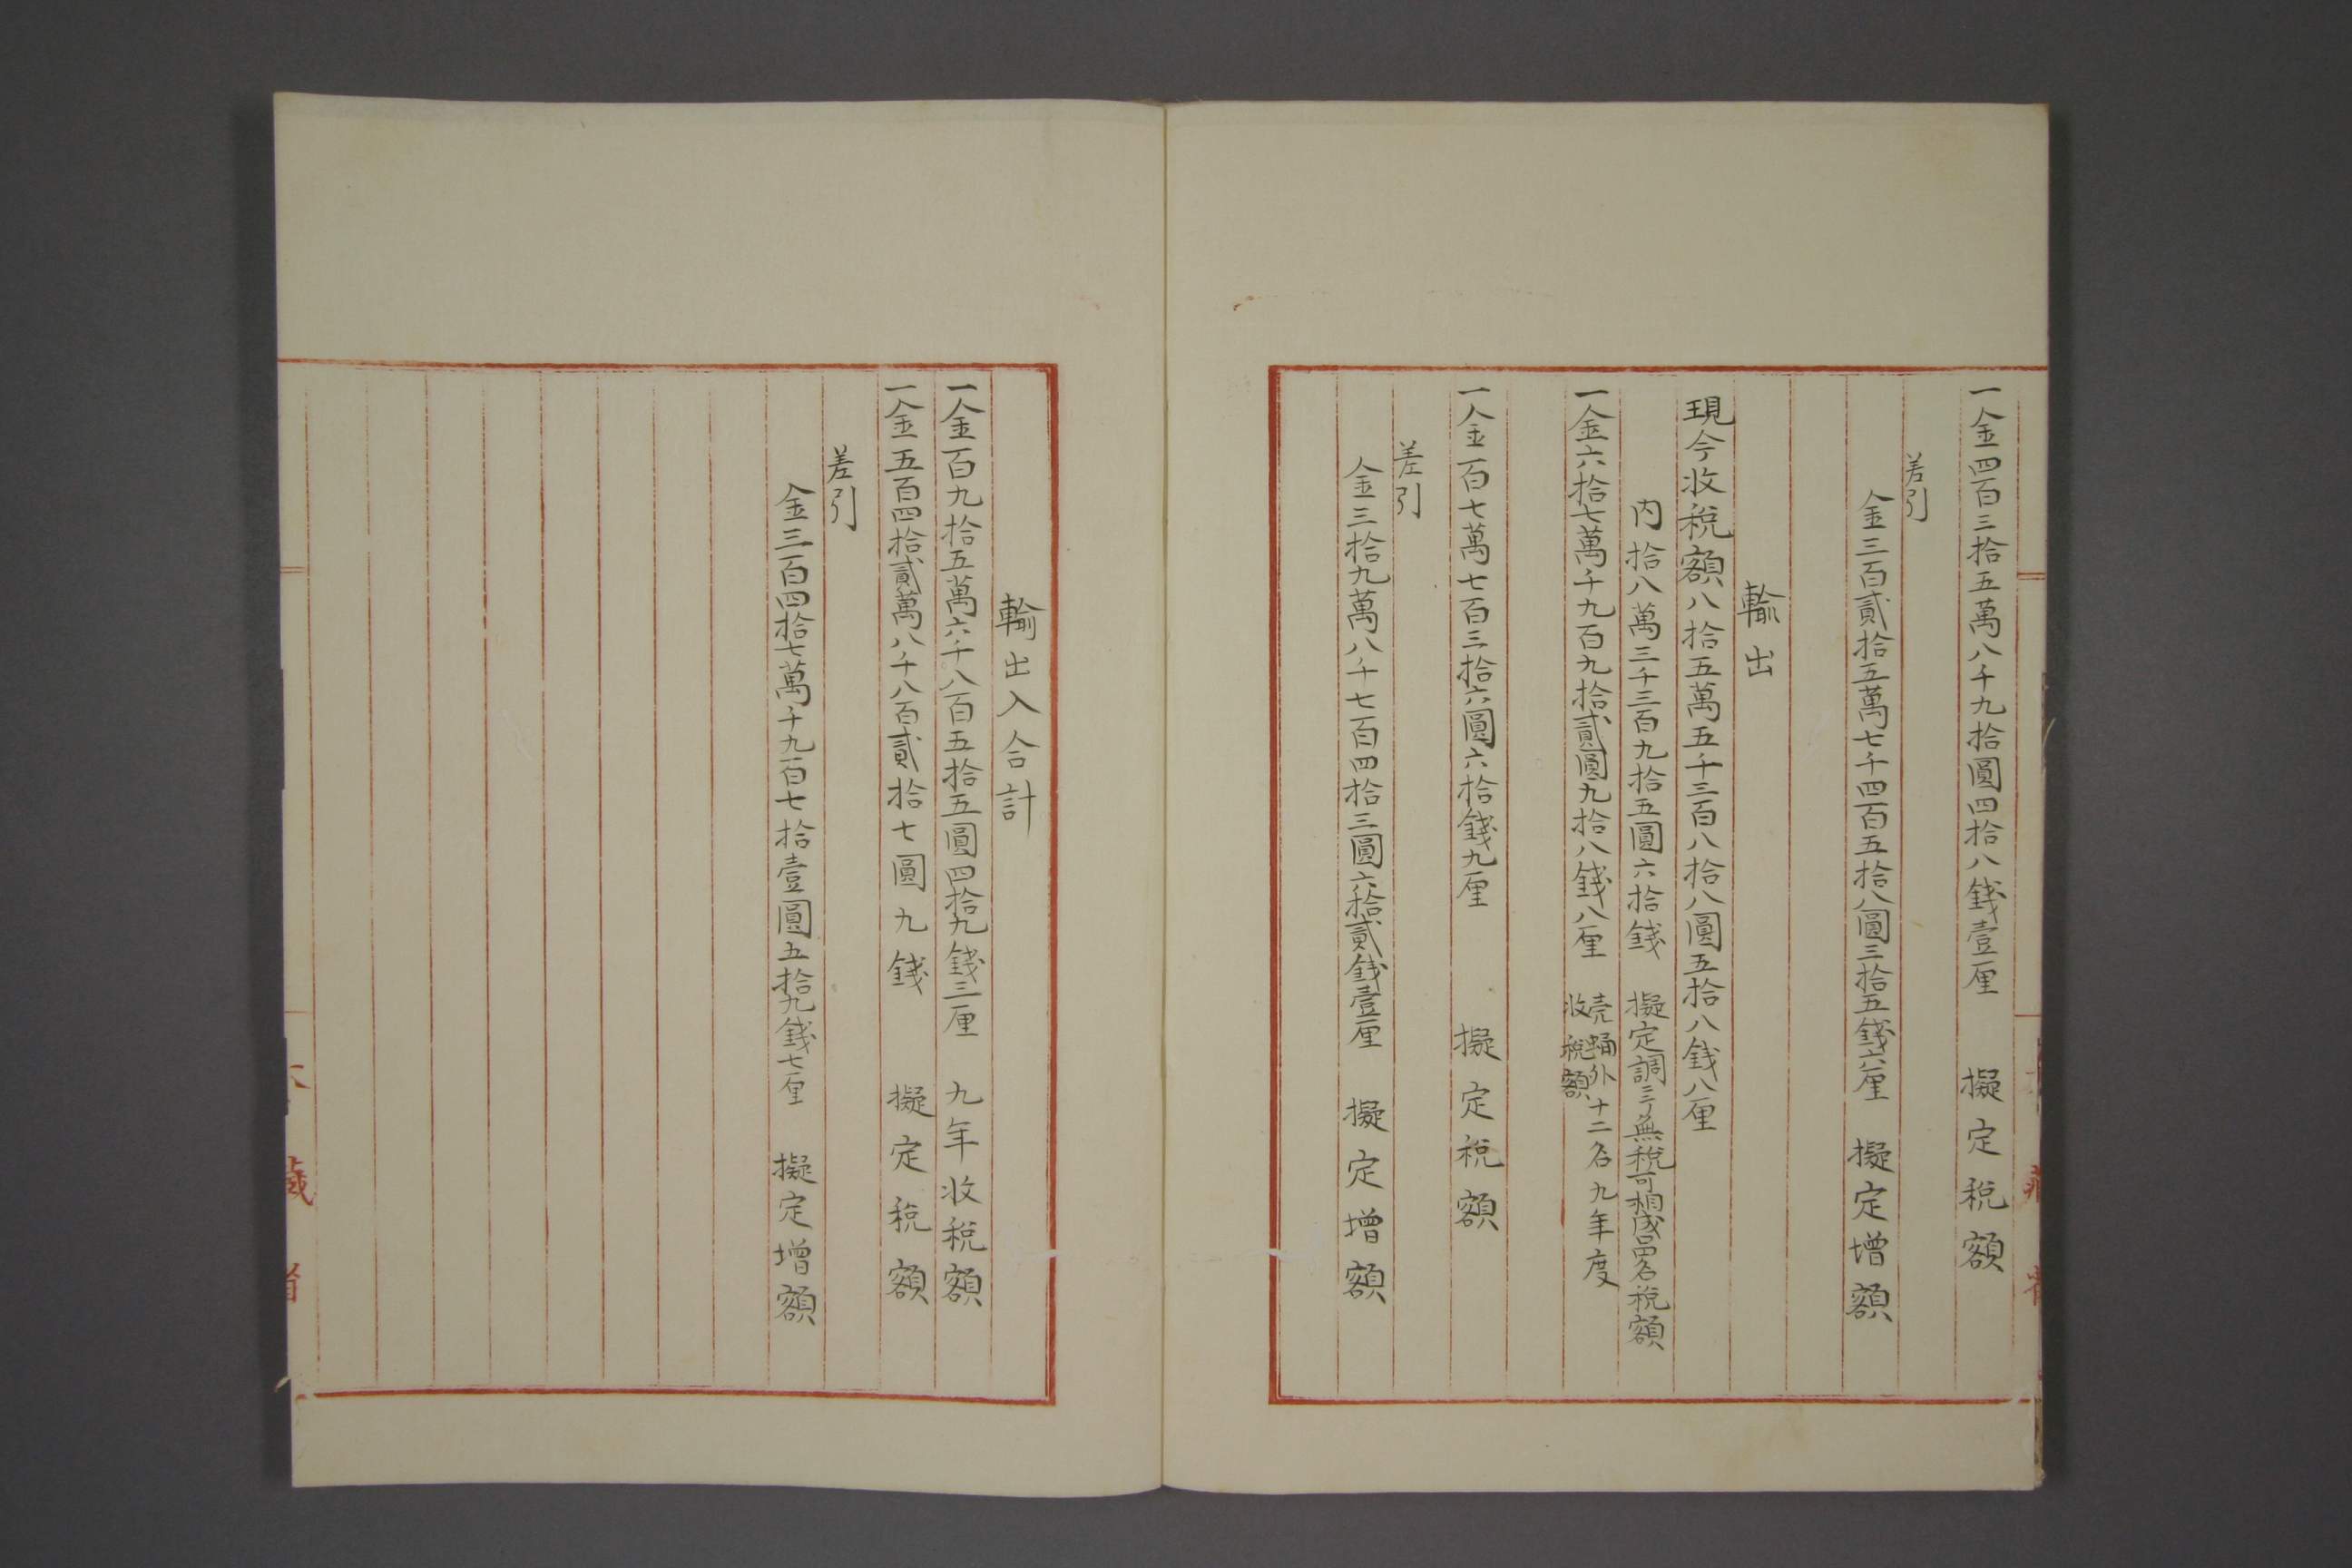 一金四百三拾五萬八千九拾圓四拾八錢壹厘　擬定税額
差引
金三百貳拾五萬七千四百五拾八圓三拾五錢六厘　擬定増額
輸出
現今收税額八拾五萬五千三百八拾八圓五拾八錢八厘
内拾八萬三千三百九拾五圓六拾錢　擬定調ニテ無税可相成品四名税額
一金六拾七萬千九百九拾貳圓九拾八錢八厘　売蛹外十二名九年度
收税額
一金百七萬七百三拾六圓六拾錢九厘　擬定税額
差引
金三拾九萬八千七百四拾三圓六拾貳錢壹厘　擬定増額
輸出入合計
一金百九拾五萬六千八百五拾五圓四拾九錢三厘　九年收税額
一金五百四拾貳萬八千八百貳拾七圓九錢　擬定税額
差引
金三百四拾七萬千九百七拾壹圓五拾九錢七厘　擬定増額
藏省